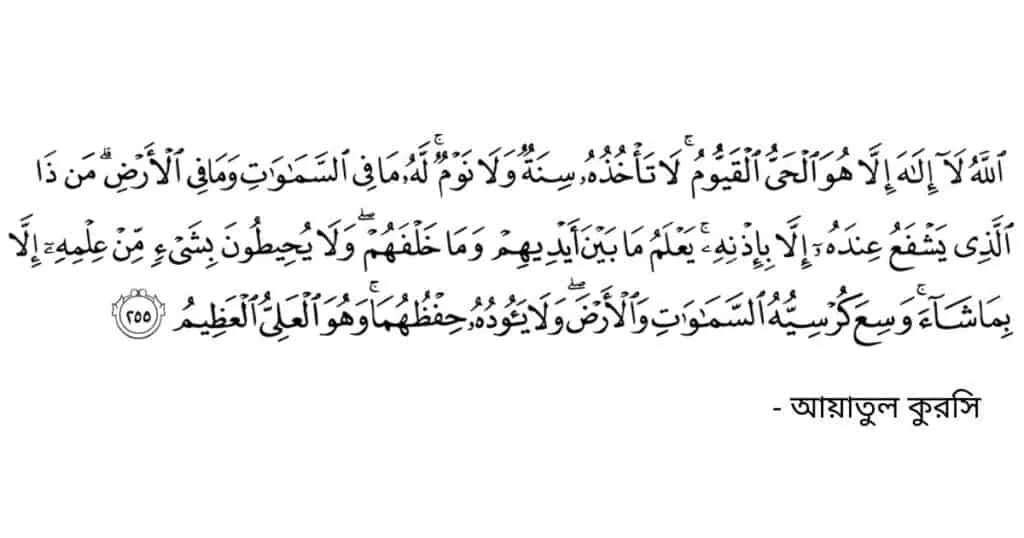 ٱللَّهُ لَآ إِلَـٰهَ إِلَّا هُوَ ٱلْحَىُّ ٱلْقَيُّومُ ۚ لَا تَأْخُذُهُۥ سِنَةٌ وَلَا نَوْمٌ ۚ لَّهُۥ مَا فِى ٱلسَّمَـٰوَٰتِ وَمَا فِى ٱلْأَرْضِ ۗ مَن ذَا
ٱلَّذِى يَشْفَعُ عِندَهُۥٓ إِلَّا بِإِذْنِهِۦ ۚ يَعْلَمُ مَا بَيْنَ أَيْدِيهِمْ وَمَا خَلْفَهُمْ ۖ وَلَا يُحِيطُونَ بِشَىْءٍ مِّنْ عِلْمِهِۦٓ إِلَّا
بِمَا شَآءَ ۚ وَسِعَ كُرْسِيُّهُ ٱلسَّمَـٰوَٰتِ وَٱلْأَرْضَ ۖ وَلَا يَـُٔودُهُۥ حِفْظُهُمَا ۚ وَهُوَ ٱلْعَلِىُّ ٱلْعَظِيمُ ٢٥٥
- আয়াতুল কুরসি